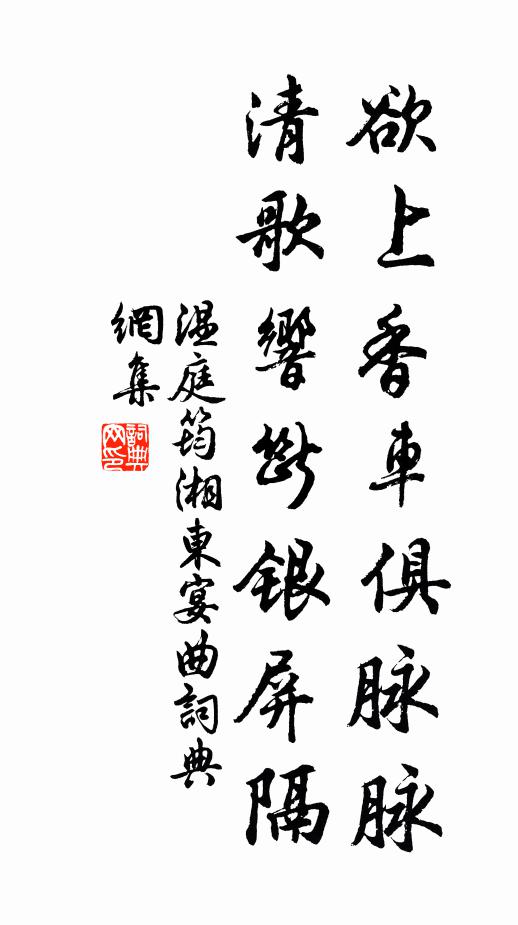 欲上香車俱脉脉
清歌響斷銀屏隔
温庭筠湘東宴曲詞典
網集
詞典網印